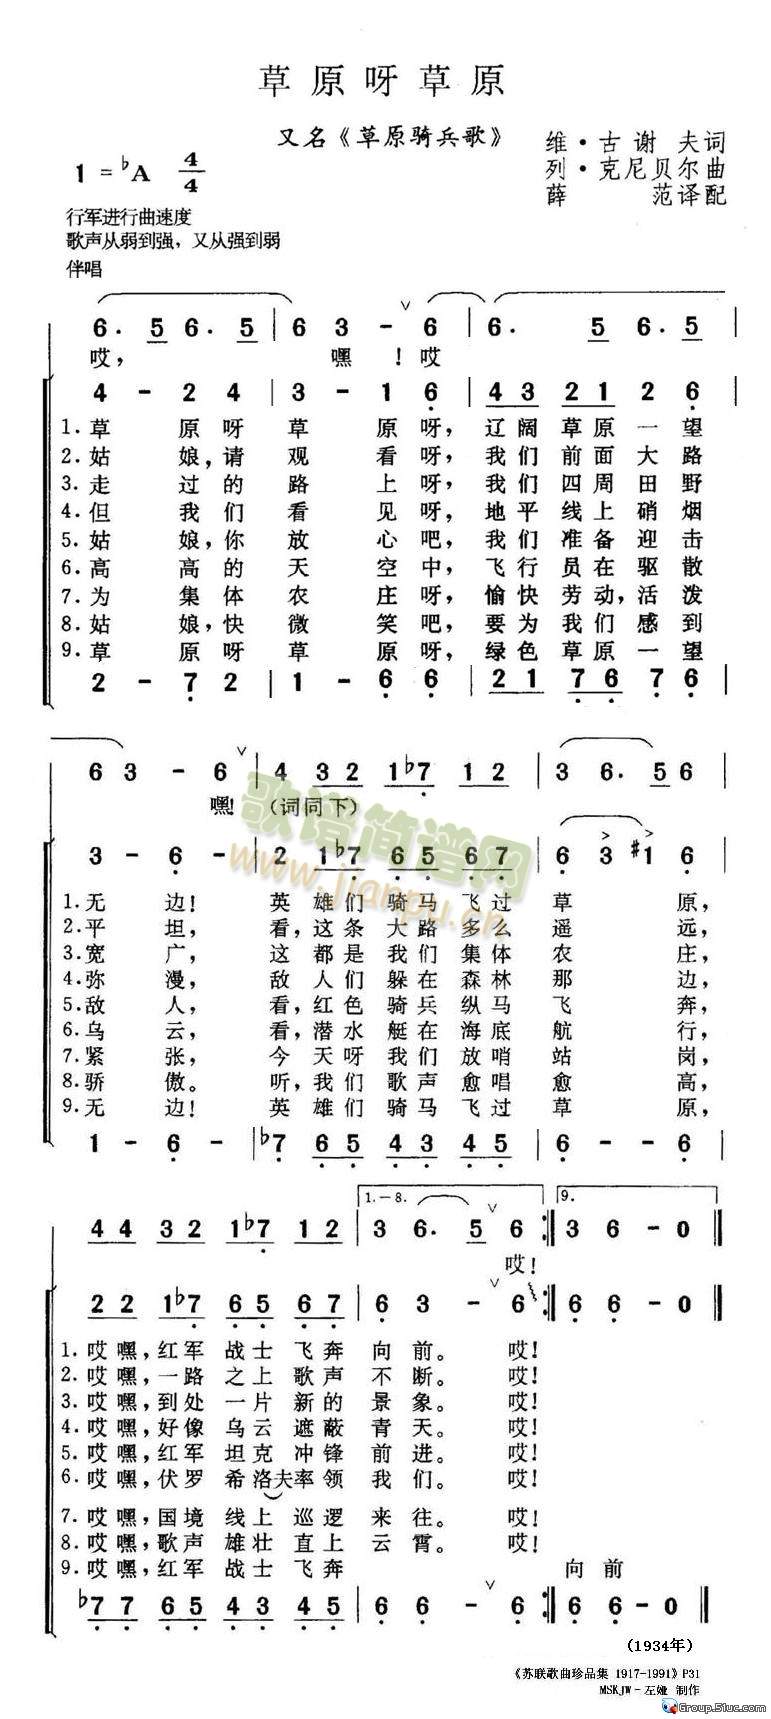 草原呀草原
又名《草原骑兵歌》
维·古谢夫词
列·克尼贝尔曲
薛范译配
1=♭A 4/4
行军进行曲速度
歌声从弱到强，又从强到弱
伴唱
6· 5 6· 5 | 6 3 - 6 | 6· 5 6· 5 |
哎， 嘿！哎
4 - 2 4 | 3 - 1 6 | 4 3 2 1 2 6 |
1.草原呀草原呀，辽阔草原一望
2.姑娘，请观看呀，我们前面大路
3.走过的路上呀，我们四周田野
4.但我们看见呀，地平线上硝烟
5.姑娘，你放心吧，我们准备迎击
6.高高的天空中，飞行员在驱散
7.为集体农庄呀，愉快劳动，活泼
8.姑娘，快微笑吧，要为我们感到
9.草原呀草原呀，绿色草原一望
2 - 7 2 | 1 - 6 6 | 2 1 7 6 7 6 |
6 3 - 6 | 4 3 2 1 ♭7 1 2 | 3 6· 5 6 |
嘿！（词同下）
3 - 6 - | 2 1 ♭7 6 5 6 7 | 6 3 ♯1 6 |
1.无边！英雄们骑马飞过草原，
2.平坦，看，这条大路多么遥远，
3.宽广，这都是我们集体农庄，
4.弥漫，敌人们躲在森林那边，
5.敌人，看，红色骑兵纵马飞奔，
6.乌云，看，潜水艇在海底航行，
7.紧张，今天呀我们放哨站岗，
8.骄傲。听，我们歌声愈唱愈高，
9.无边！英雄们骑马飞过草原，
1 - 6 - | ♭7 6 5 4 3 4 5 | 6 - 6 - |
1.-8. 9.
4 4 3 2 1 ♭7 1 2 | 3 6· 5 6 :‖ 3 6 - 0 ‖
哎！
2 2 1 ♭7 6 5 6 7 | 6 3 - 6 :‖ 6 6 - 0 ‖
1.哎嘿，红军战士飞奔向前。哎！
2.哎嘿，一路之上歌声不断。哎！
3.哎嘿，到处一片新的景象。哎！
4.哎嘿，好像乌云遮蔽青天。哎！
5.哎嘿，红军坦克冲锋前进。哎！
6.哎嘿，伏罗希洛夫率领我们。哎！
7.哎嘿，国境线上巡逻来往。哎！
8.哎嘿，歌声雄壮直上云霄。哎！
9.哎嘿，红军战士飞奔 向前
♭7 7 6 5 4 3 4 5 | 6 6 - 6 :‖ 6 6 - 0 ‖
（1934年）
《苏联歌曲珍品集 1917-1991》P31
MSKJW－左娅 制作
歌谱简谱网
www.jianpu.cn
Group.51uc.com